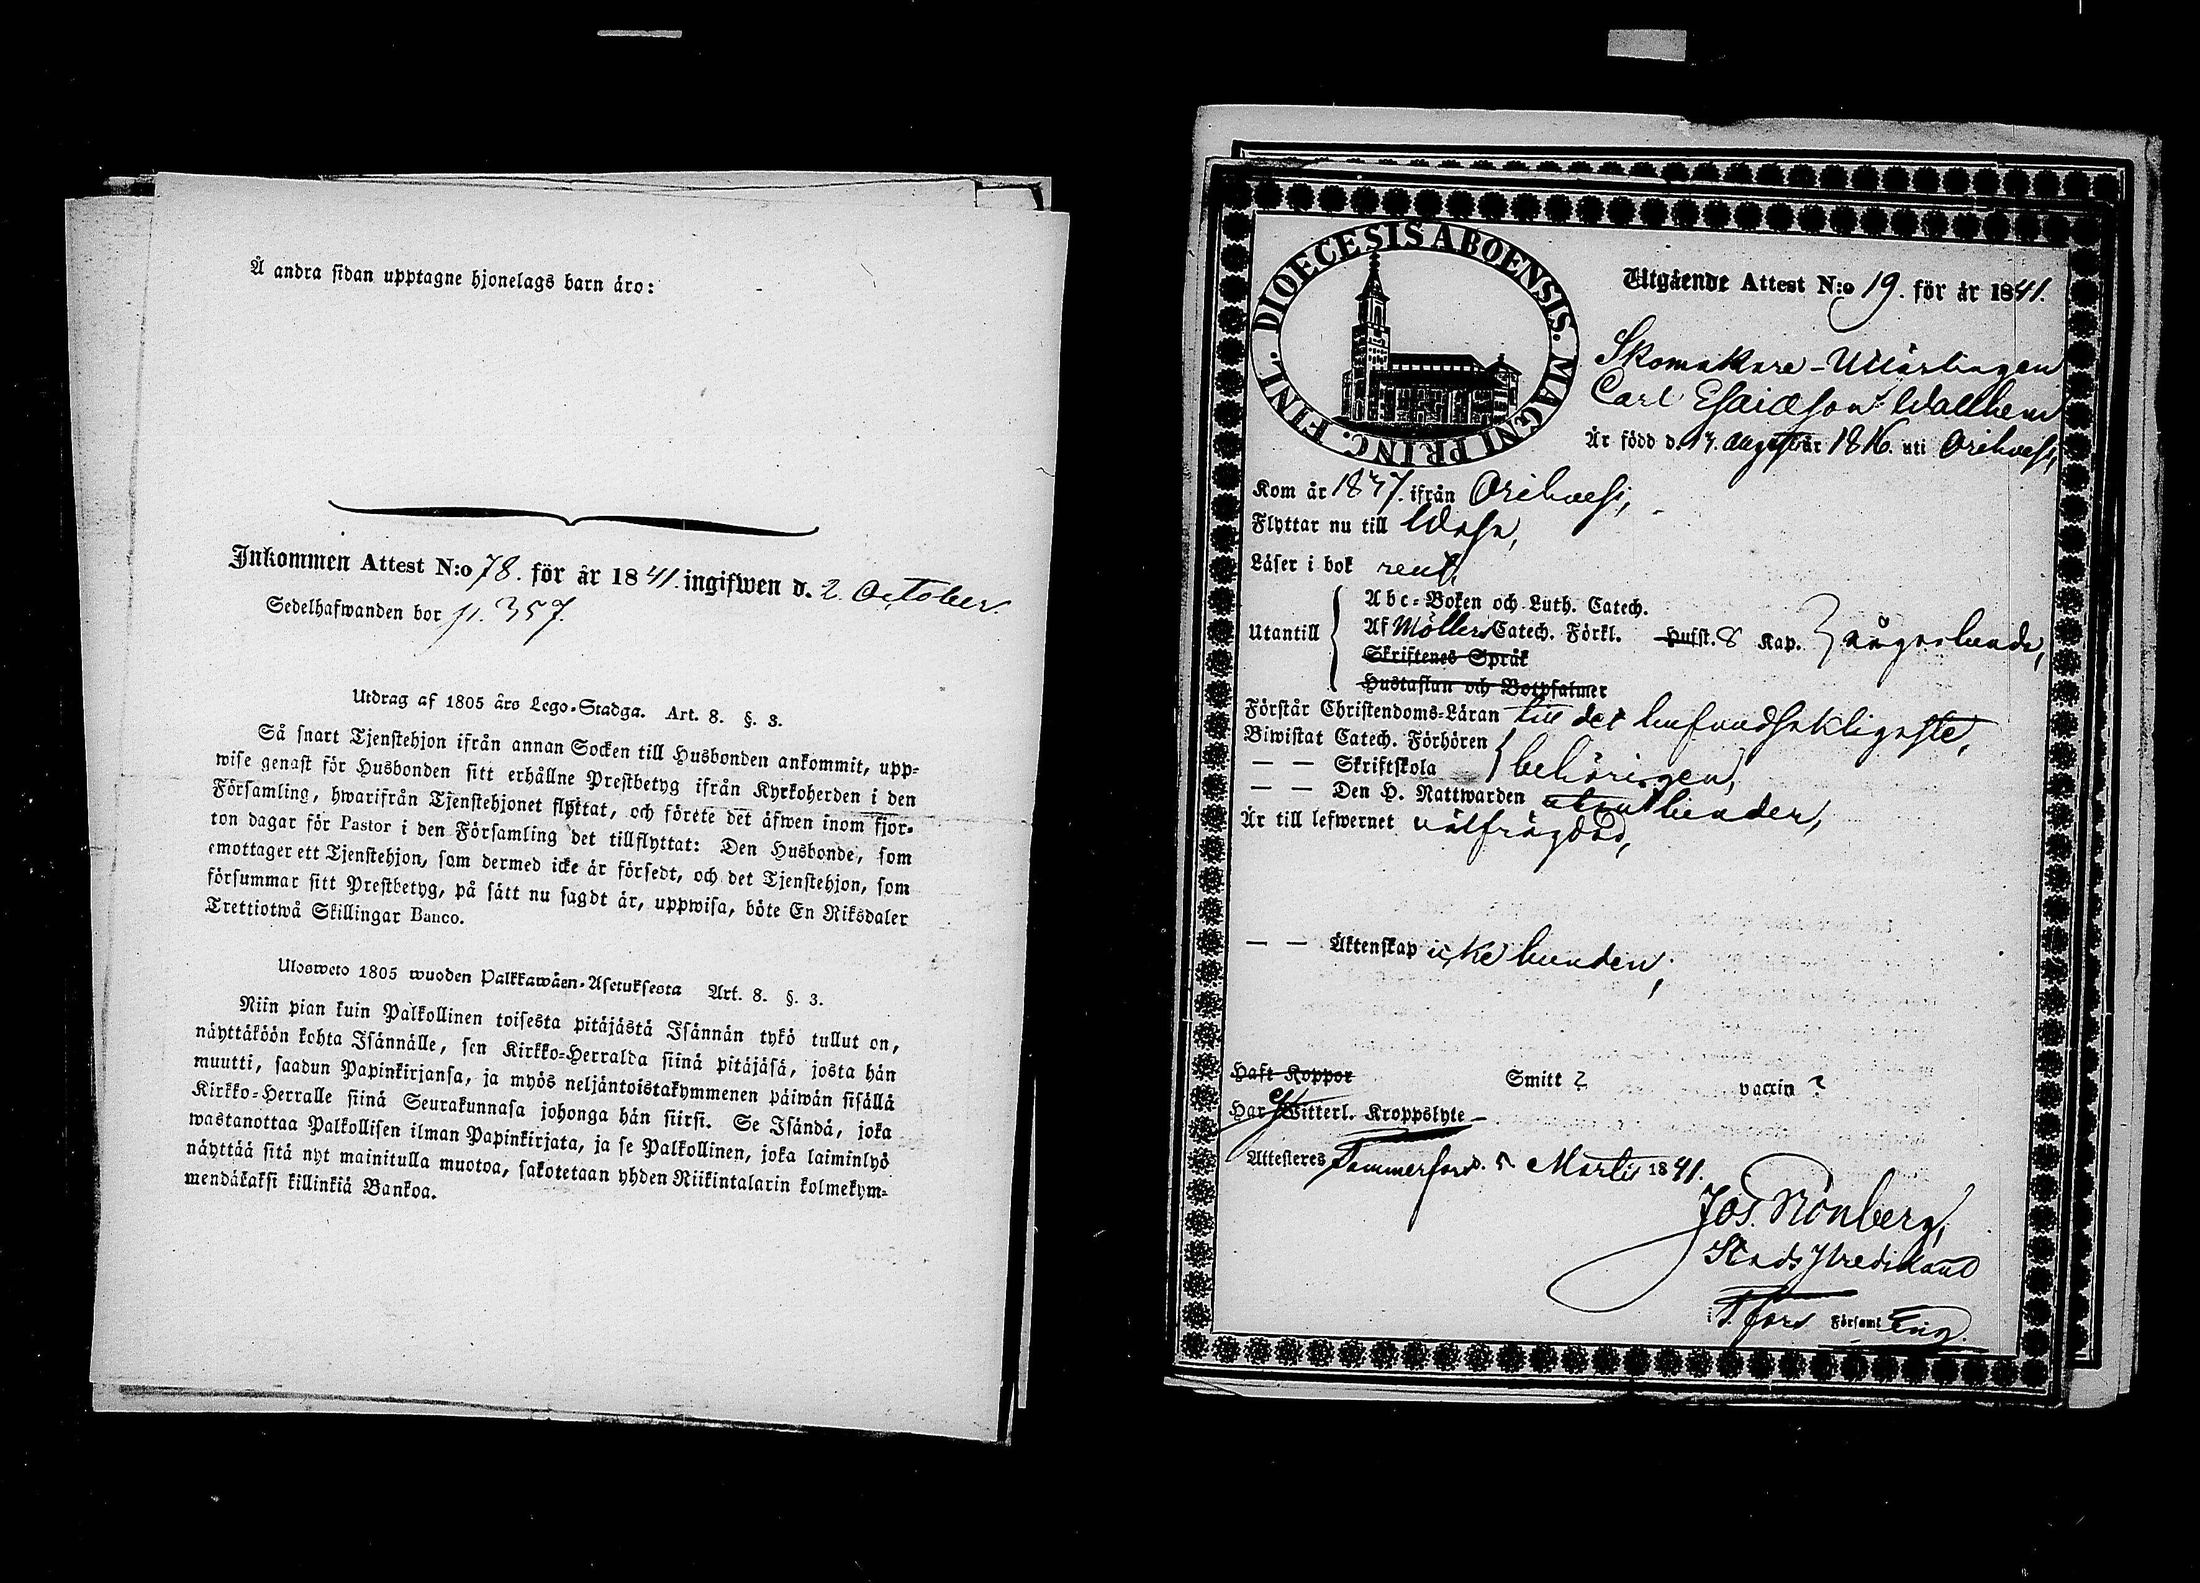 Å andra sidan upptagne hjonelags barn äro:
Inkommen Attest N:o 78. för år 1841. ingifwen d. 2. October
Sedelhafwanden bor p. 357.
Utdrag af 1805 års Lego-Stadga. Art. 8. §. 3.
Så snart Tjenstehjon ifrån annan Socken till Husbonden ankommit, upp-
wise genast för Husbonden sitt erhållne Prestbetyg ifrån Kyrkoherden i den
Församling, hwarifrån Tjenstehjonet flyttat, och förete det äfwen inom fjor-
ton dagar för Pastor i den Församling det tillflyttat: Den Husbonde, som
emottager ett Tjenstehjon, som dermed icke är försedt, och det Tjenstehjon, som
försummar sitt Prestbetyg, på sätt nu sagdt är, uppwisa, böte En Riksdaler
Trettiotwå Skillingar Banco.
Ulosweto 1805 wuoden Palkkawäen-Asetuksesta Art. 8. §. 3.
Niin pian kuin Palkollinen toisesta pitäjästä Isännän tykö tullut on,
näyttäköön kohta Isännälle, sen Kirkko-Herralda siinä pitäjäsä, josta hän
muutti, saadun Papinkirjansa, ja myös neljäntoistakymmenen päiwän sisällä
Kirkko-Herralle siinä Seurakunnasa johonga hän siirsi. Se Isändä, joka
wastanottaa Palkollisen ilman Papinkirjata, ja se Palkollinen, joka laiminlyö
näyttää sitä nyt mainitulla muotoa, sakotetaan yhden Riikintalarin kolmekym-
mendäkaksi killinkiä Bankoa.
DIOECESIS ABOENSIS. MAGNI PRINC. FINL.
Utgående Attest N:o 19. för år 1841.
Skomakare-Lärlingen
Carl Esaiæson Wallhen
Är född d. 17. August år 1816. uti Orihvesi,
Kom år 1837. ifrån Orihvesi,
Flyttar nu till Wasa,
Läser i bok rent,
Utantill
Abc-Boken och Luth. Catech.
Af Möllers Catech. Förkl. Hufst. 8 Kap. någorlunda,
Skriftenes Språk
Hustaflan och Botpsalmer
Förstår Christendoms-Läran till det hufvudsakligaste,
Biwistat Catech. Förhören
— — Skriftskola behörigen,
— — Den H. Nattwarden
Är till lefwernet välfrägdad,
— — Äktenskap icke bunden,
Haft Koppor Smitt ? vaccin ?
Har Ej Witterl. Kroppslyte —
Attesteres Tammerfors d. 5 Martii 1841.
Jos. Rönberg,
Stads Predikant
i T.fors Församl